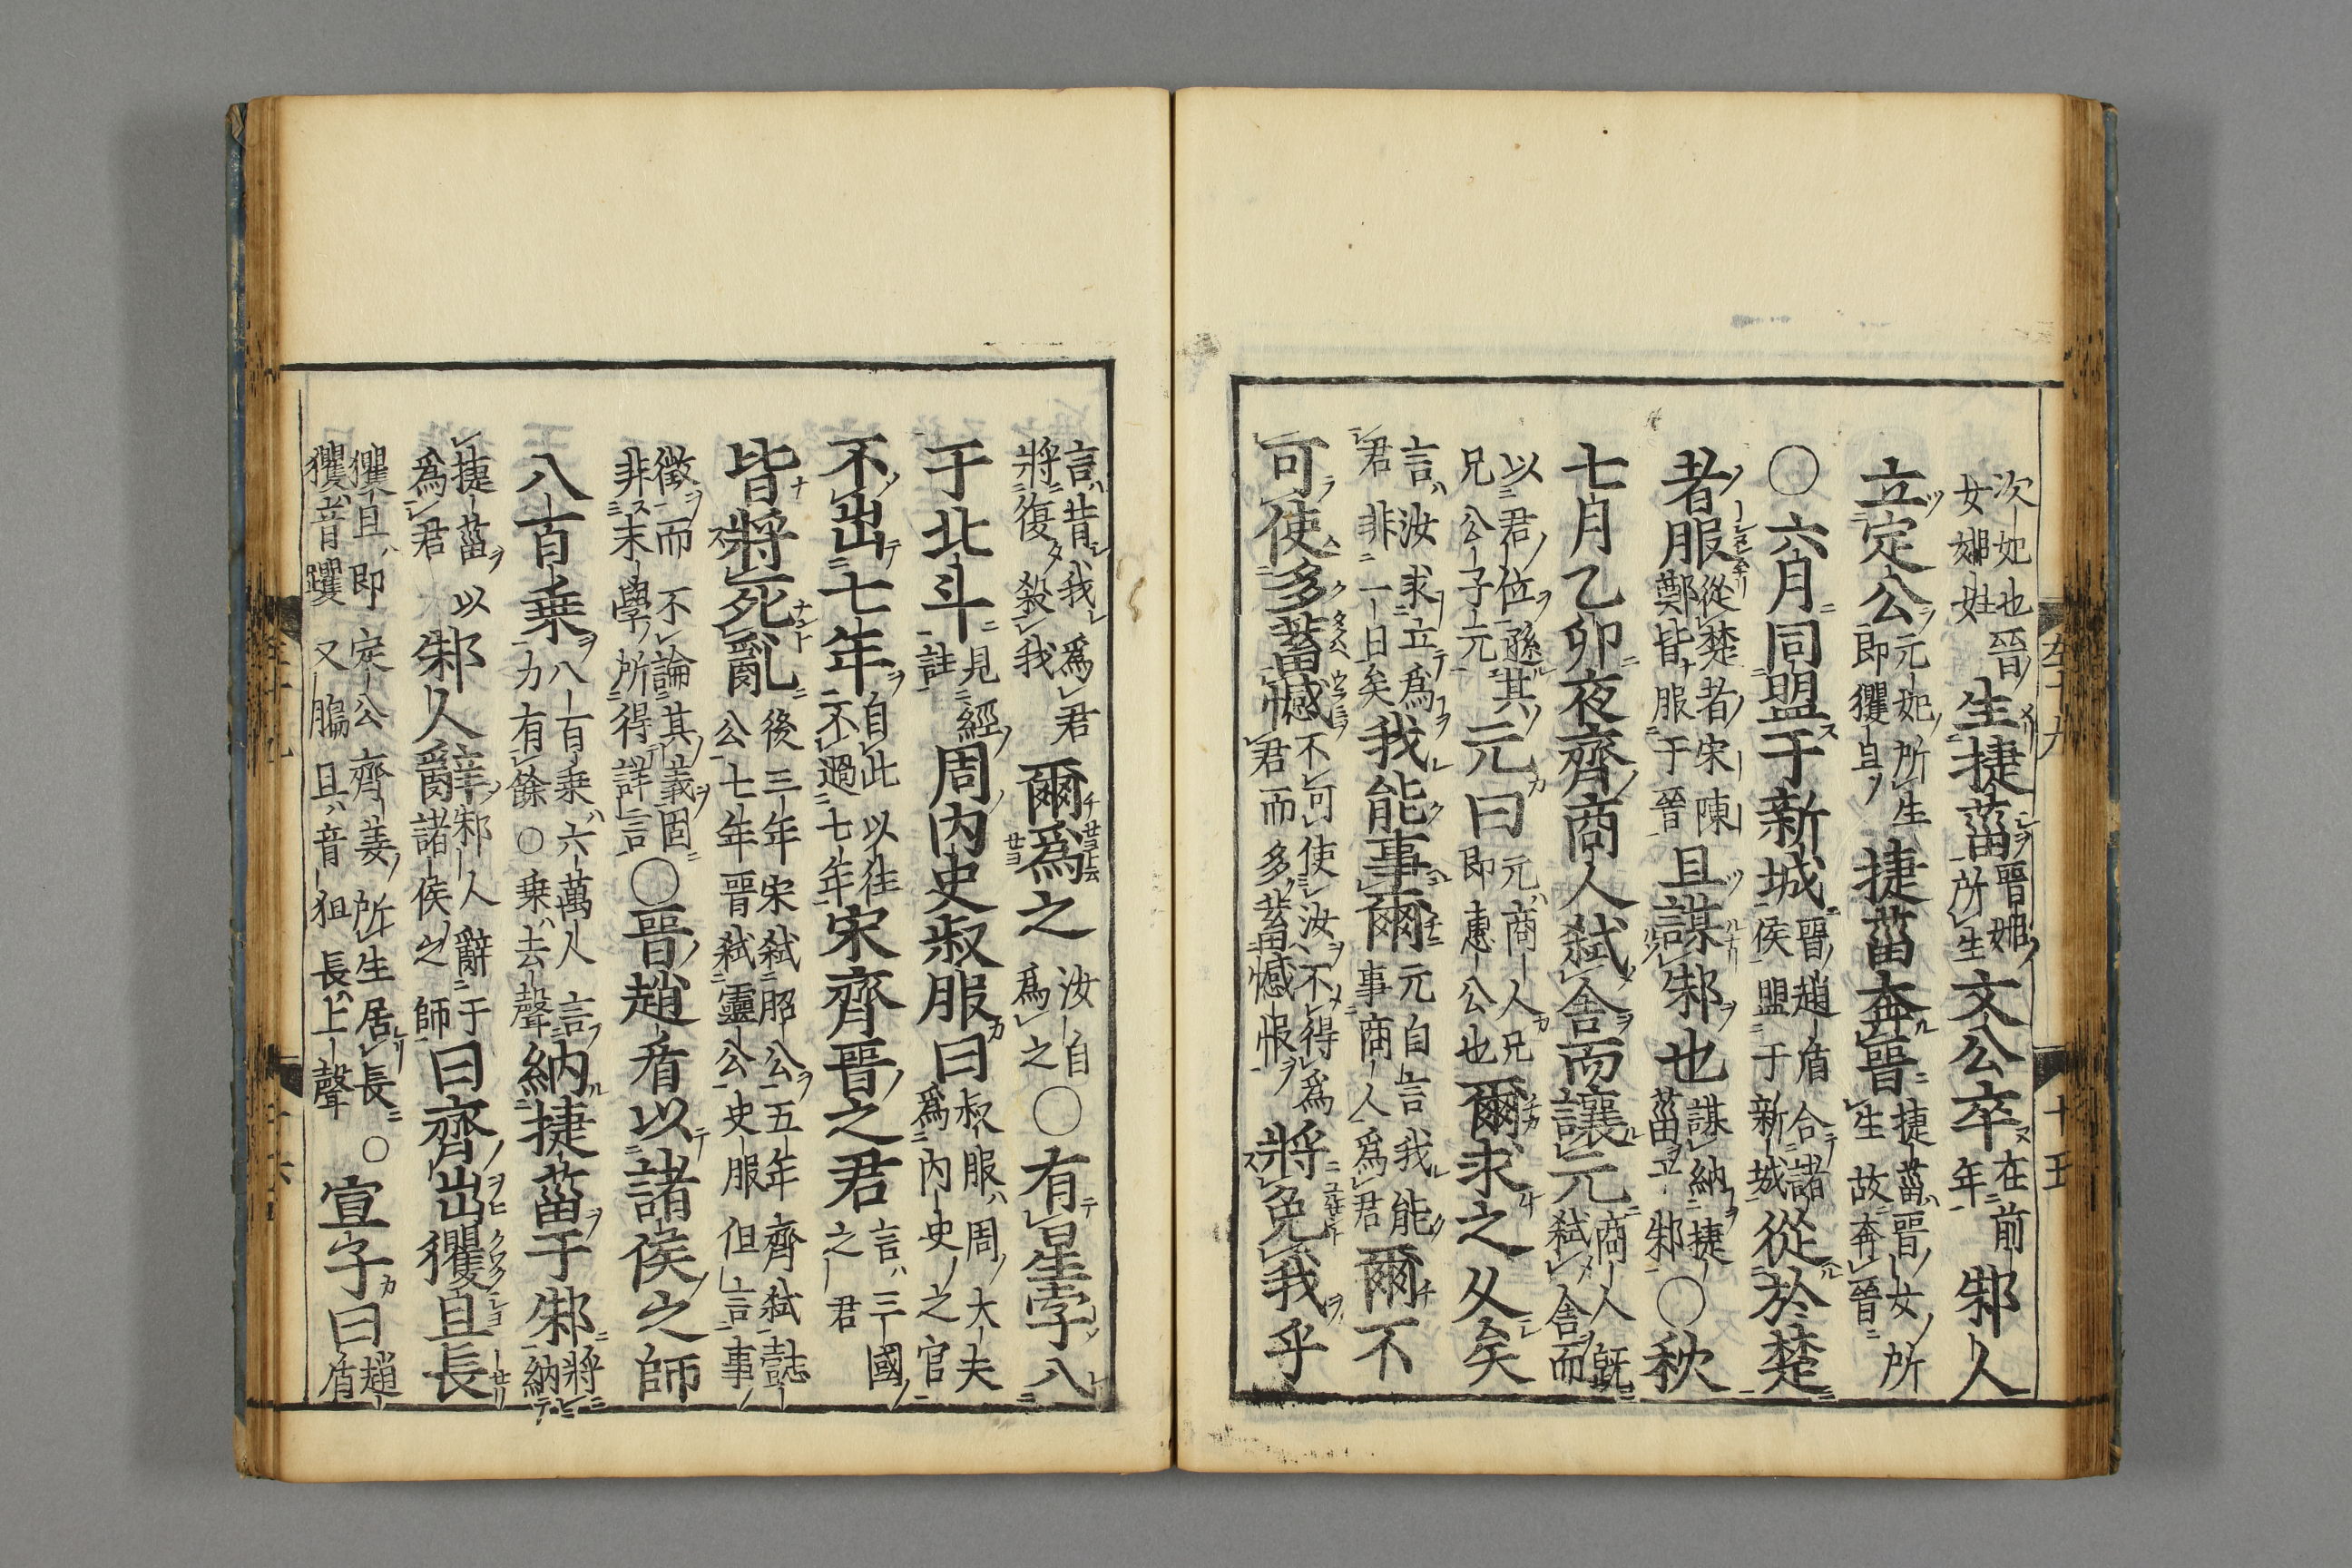 次妃也晉女姫姓生捷菑晉姫所生文公卒在前年邾人
立定公元妃所生即玃且捷菑奔晉捷菑晉女所生故奔晉
〇六月同盟于新城晉趙盾合諸侯盟于新城從於楚
者服從楚者宋陳鄭皆服于晉且謀邾也謀納捷菑立邾〇秋
七月乙卯夜齊商人弑舍而讓元商人既弑舍而
以君位遜其兄公子元元曰元商人兄即惠公也爾求之久矣
言汝求立爲君非一日矣我能事爾元自言我能事商人爲君爾不
可使多蓄憾不可使汝不得爲君而多蓄憾恨將免我乎
左十九 十五
言昔我爲君將復殺我爾爲之汝自爲之〇有星孛八
于北斗見經註周内史叔服曰叔服周大夫爲内史之官
不出七年自此以往不過七年宋齊晉之君言三國之君
皆將死亂後三年宋弑昭公五年齊弑懿公七年晉弑靈公史服但言事
徵而不論其義固非末學所得詳言〇晉趙盾以諸侯之師
八百乗八百乗六萬人言力有餘〇乗去聲納捷菑于邾將納
捷菑以爲君邾人辭邾人辭于諸侯之師曰齊出玃且長
玃且即定公齊姜所生居長〇玃音躩又膓且音狙長上聲宣子曰趙盾